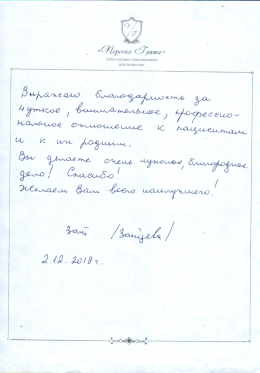 «Персона Грата»
Сеть частных пансионатов
для пожилых
Выражаю благодарность за
чуткое, внимательное, профессио-
нальное отношение к пациентам
и к их родным.
Вы делаете очень нужное, благородное
дело! Спасибо!
Желаем Вам всего наилучшего!
/Зайцева/
2.12.2018г.